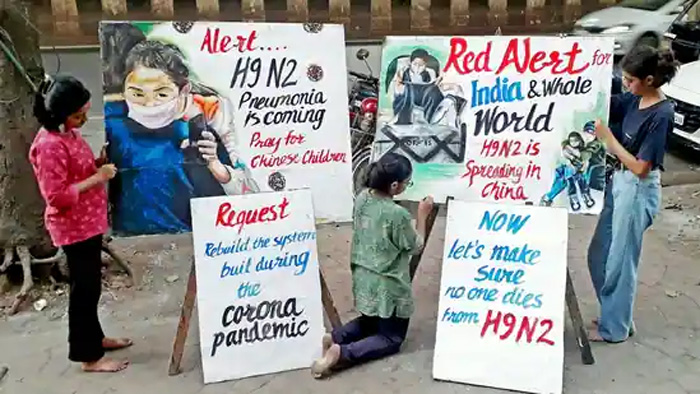 Alert....
H9N2
Pneumonia
is coming
Pray for
Chinese Children
Red Alert for
India & Whole
World
H9N2 is
Spreading in
China
Request
Rebuild the system
buit during
the
corona
pandemic
NOW
let's make
sure
no one dies
from H9N2